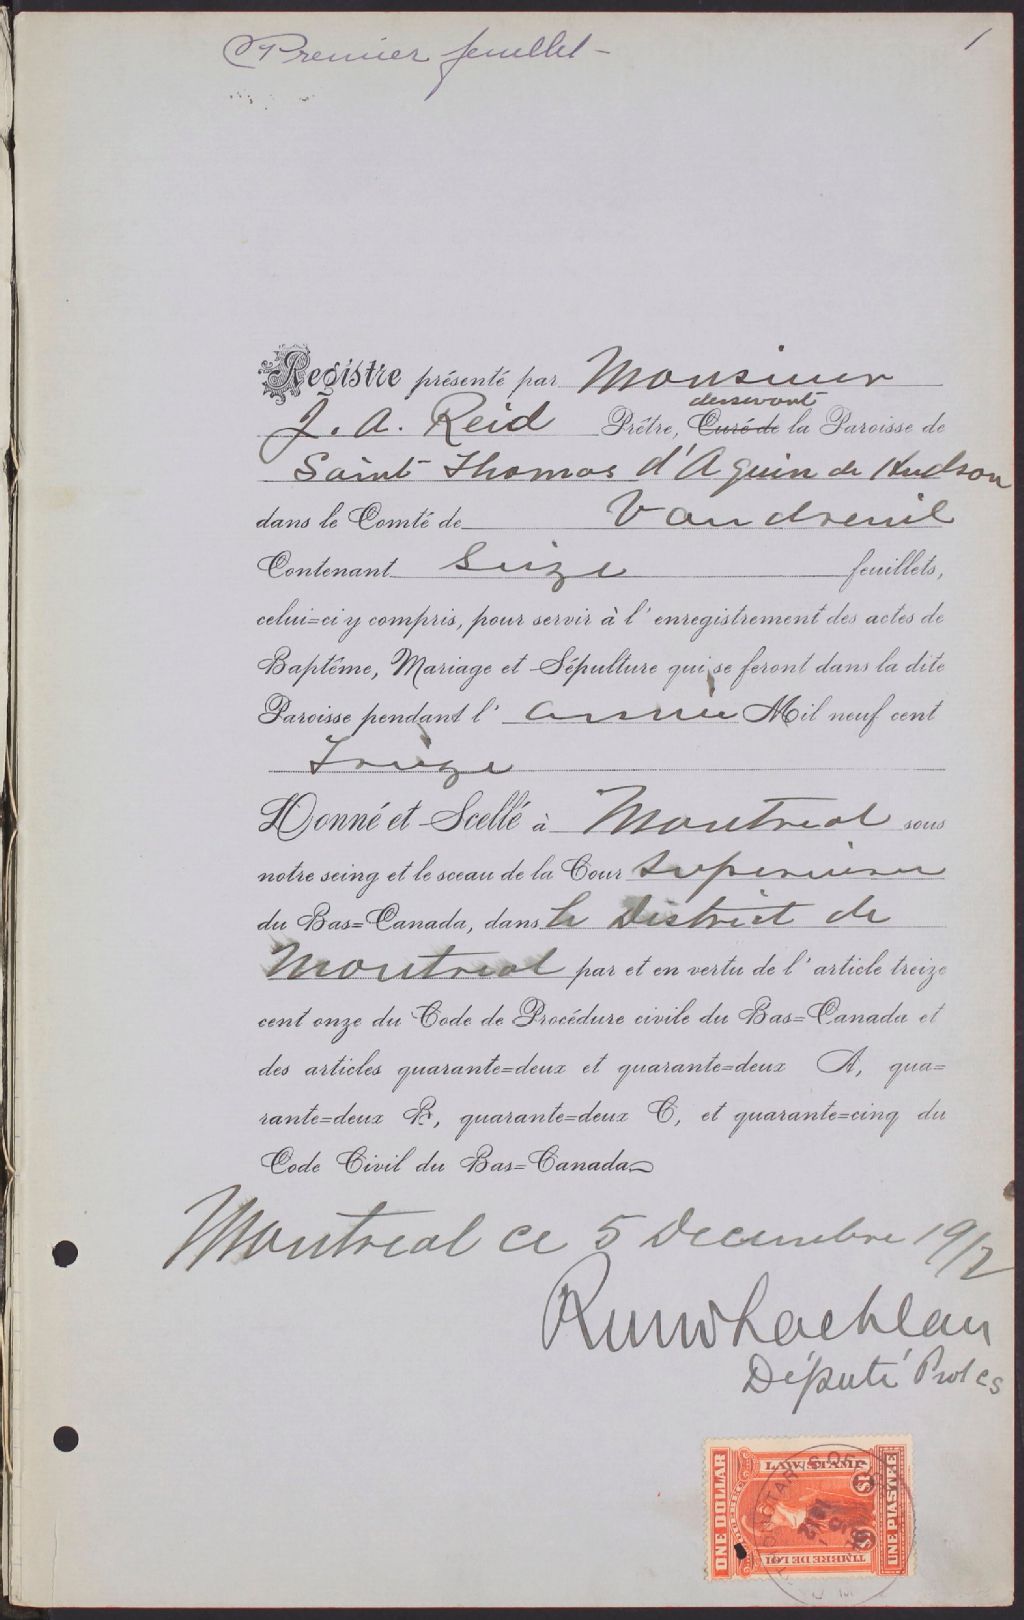 Premier feuillet - 1
Registre présenté par Monsieur
desservant
J. A. Reid Prêtre, Curé de la Paroisse de
Saint Thomas d'Aquin de Hudson
dans le Comté de Vaudreuil
Contenant Seize feuillets,
celui=ci y compris, pour servir à l'enregistrement des actes de
Baptême, Mariage et Sépulture qui se feront dans la dite
Paroisse pendant l' année Mil neuf cent
Treize
Donné et Scellé à Montreal sous
notre seing et le sceau de la Cour Superieure
du Bas=Canada, dans le District de
Montreal par et en vertu de l'article treize
cent onze du Code de Procédure civile du Bas=Canada et
des articles quarante=deux et quarante=deux A, qua=
rante=deux B, quarante=deux C, et quarante=cinq du
Code Civil du Bas=Canada
Montreal ce 5 Decembre 1912
Député Prot CS
ONE DOLLAR
LAW STAMP
QUEBEC
$1
TIMBRE DE LOI
UNE PIASTRE